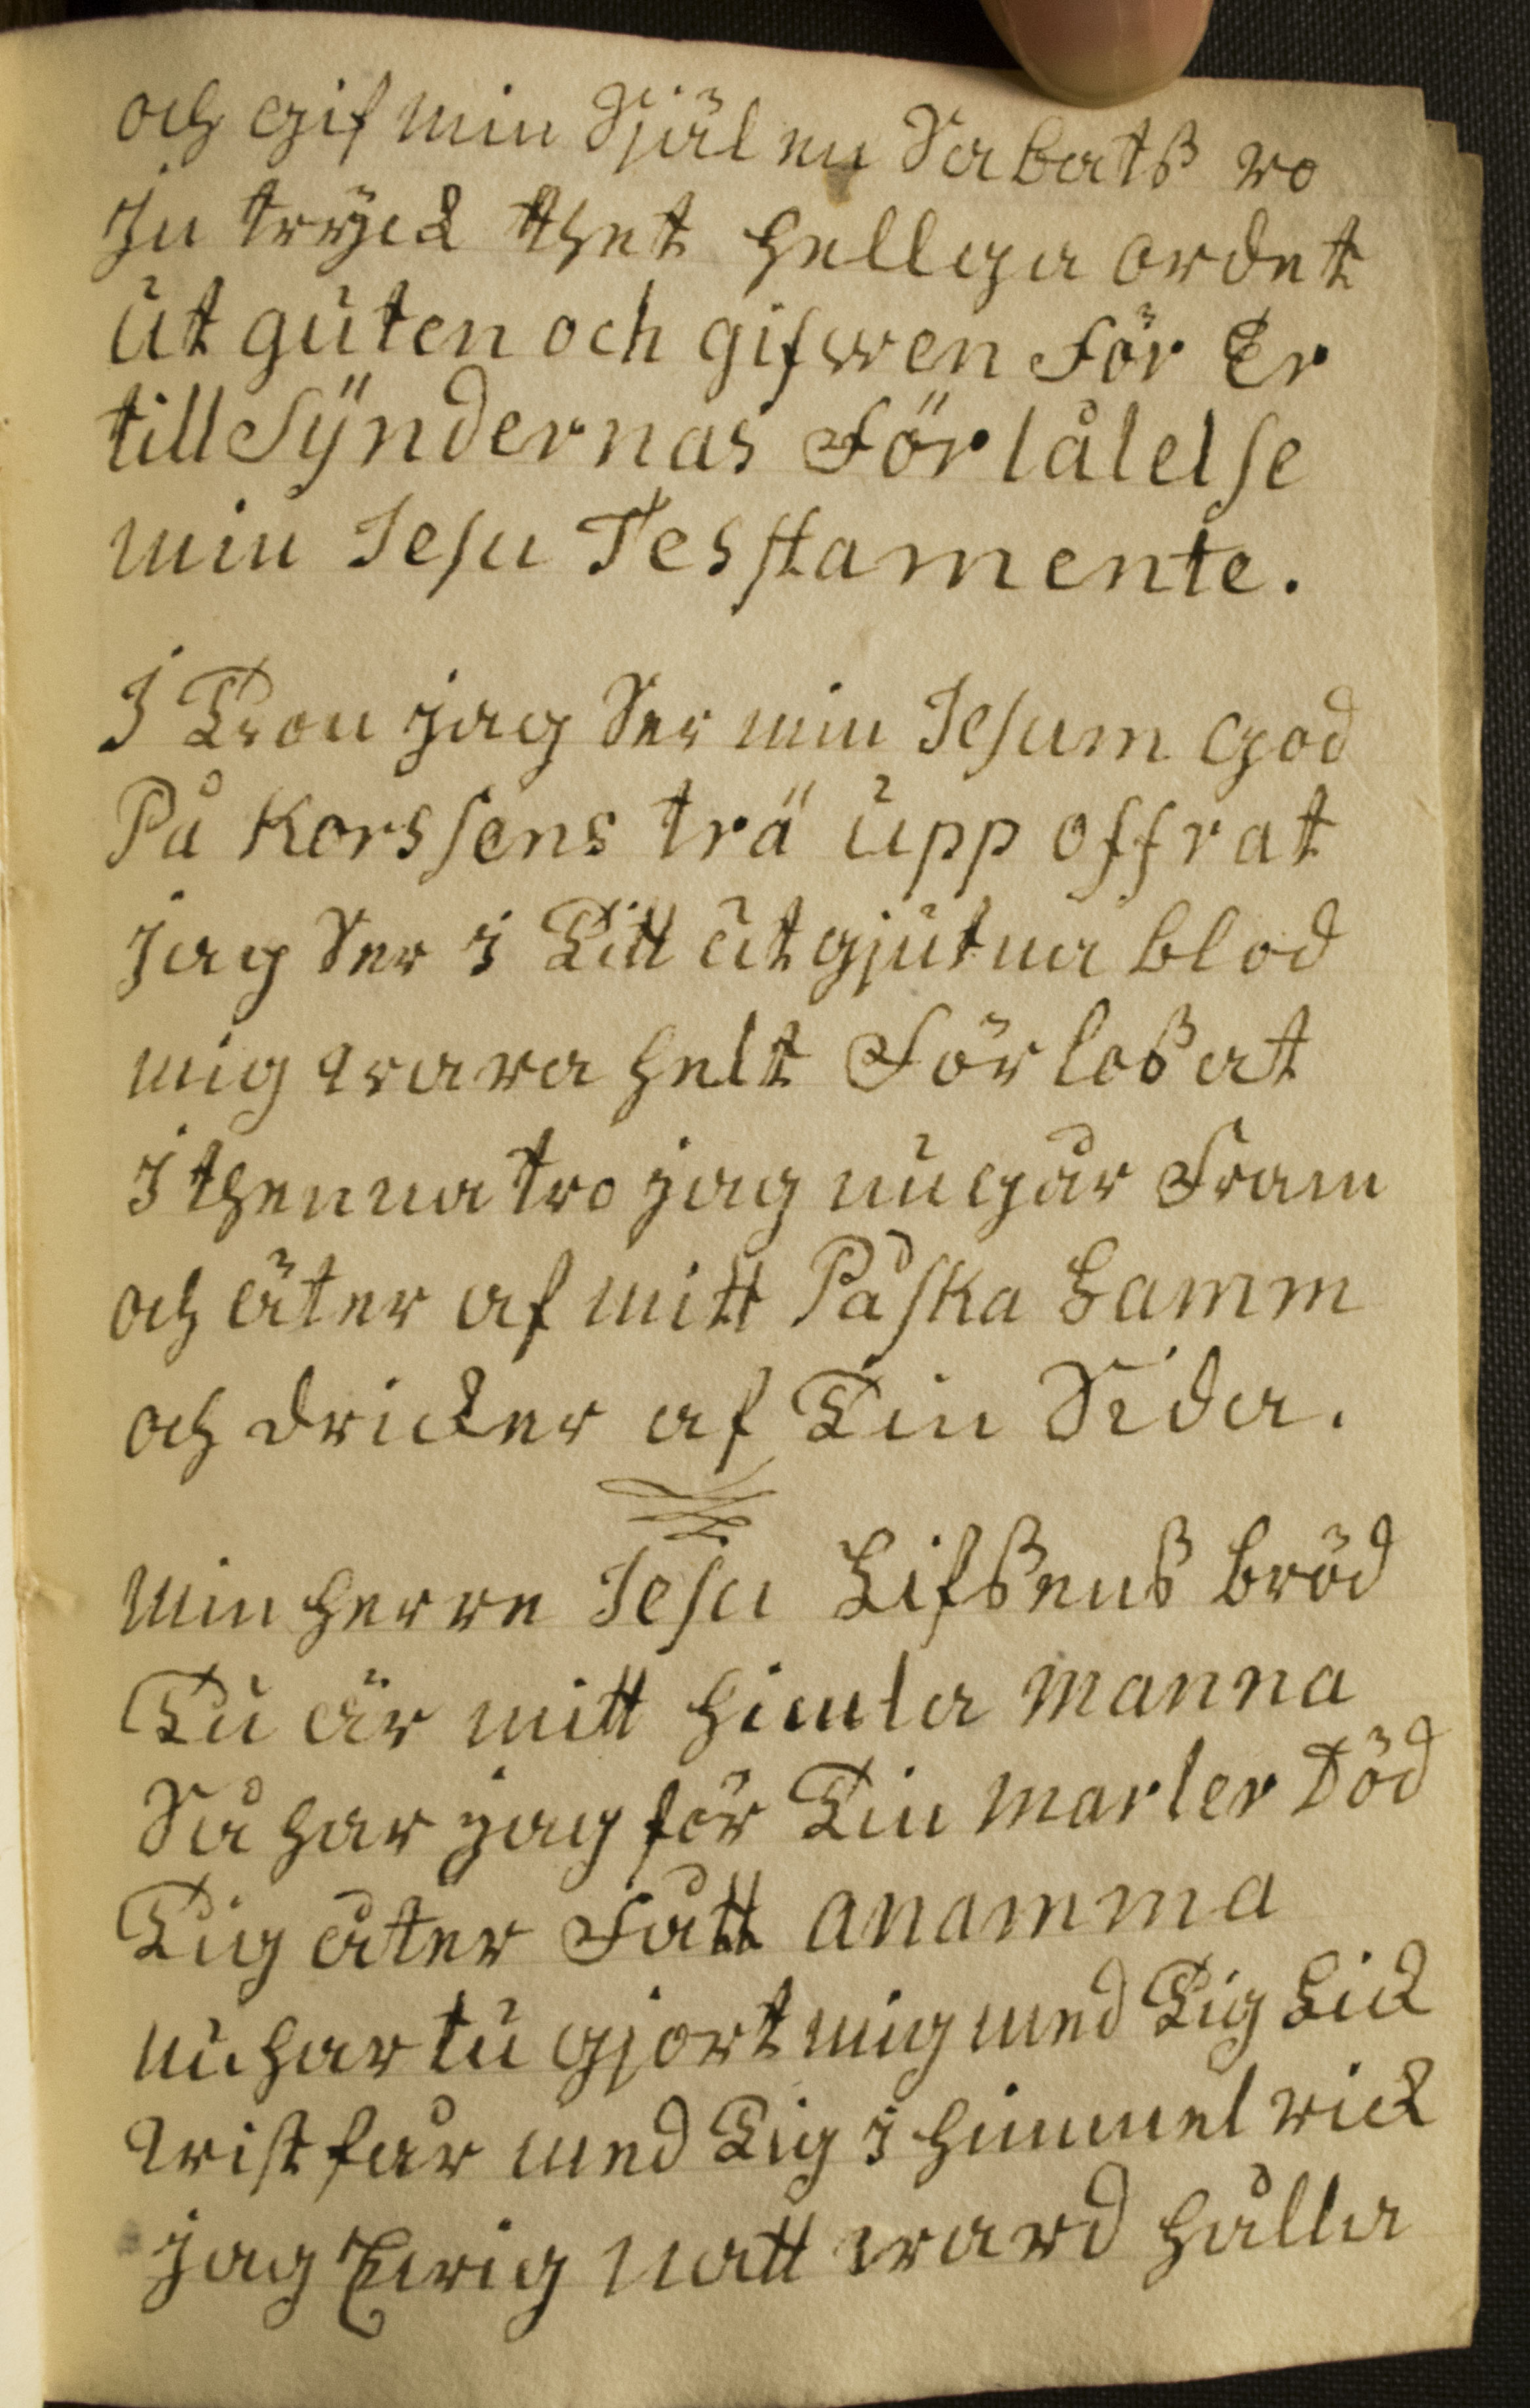 och gif min Själ en Sabatß ro
In tryck thet hellga ordet
ut guten och gifwen För Er
till Syndernas Förlålelse
min Jesu Tesstamente.
I Tron jag Ser min Jesum god
På Korssens trä upp offrat
jag Ser i Titt utgjutna blod
mig wara helt Förloßat
i thenna tro jag nu går Fram
och äter af mitt Påska Lamm
och dricker af Tin Sida.
min herre Jesu Lifßenß bröd
Tu är mitt himla manna
Så har jag för Tin marler Död
Tig åter Fått anamma
nu har tu gjort mig med Tig Lick
wist får med Tig i himmel rick
jag Ewig natt ward hålla